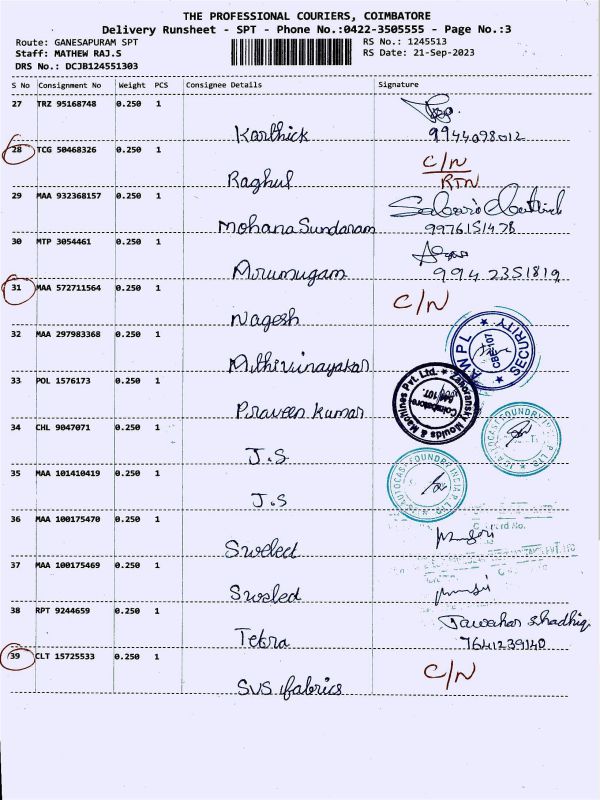 THE PROFESSIONAL COURIERS, COIMBATORE
Delivery Runsheet - SPT - Phone No.:0422-3505555 - Page No.:3
Route: GANESAPURAM SPT RS No.: 1245513
Staff: MATHEW RAJ.S RS Date: 21-Sep-2023
DRS No.: DCJB124551303
S No Consignment No Weight PCS Consignee Details Signature
27 TRZ 95168748 0.250 1
Karthick 9944098012
28 TCG 50468326 0.250 1 C/N
Raghul RTN
29 MAA 932368157 0.250 1
Mohana Sundaram 9976151478
30 MTP 3054461 0.250 1
Arumugam 9942351819
31 MAA 572711564 0.250 1 C/N
Nagesh
32 MAA 297983368 0.250 1
AWPL SECURITY CBE-107
33 POL 1576173 0.250 1
Zahoransky Moulds & Machines Pvt. Ltd. Coimbatore
Praveen Kumar
34 CHL 9047071 0.250 1
J.S
35 MAA 101410419 0.250 1
AUTOCAST FOUNDRY INDIA P LTD
J.S
36 MAA 100175470 0.250 1
Sweled
37 MAA 100175469 0.250 1
Sweled
38 RPT 9244659 0.250 1 Jawahar Shadhiq
Tetra 7641239140
39 CLT 15725533 0.250 1 C/N
SVS fabrics